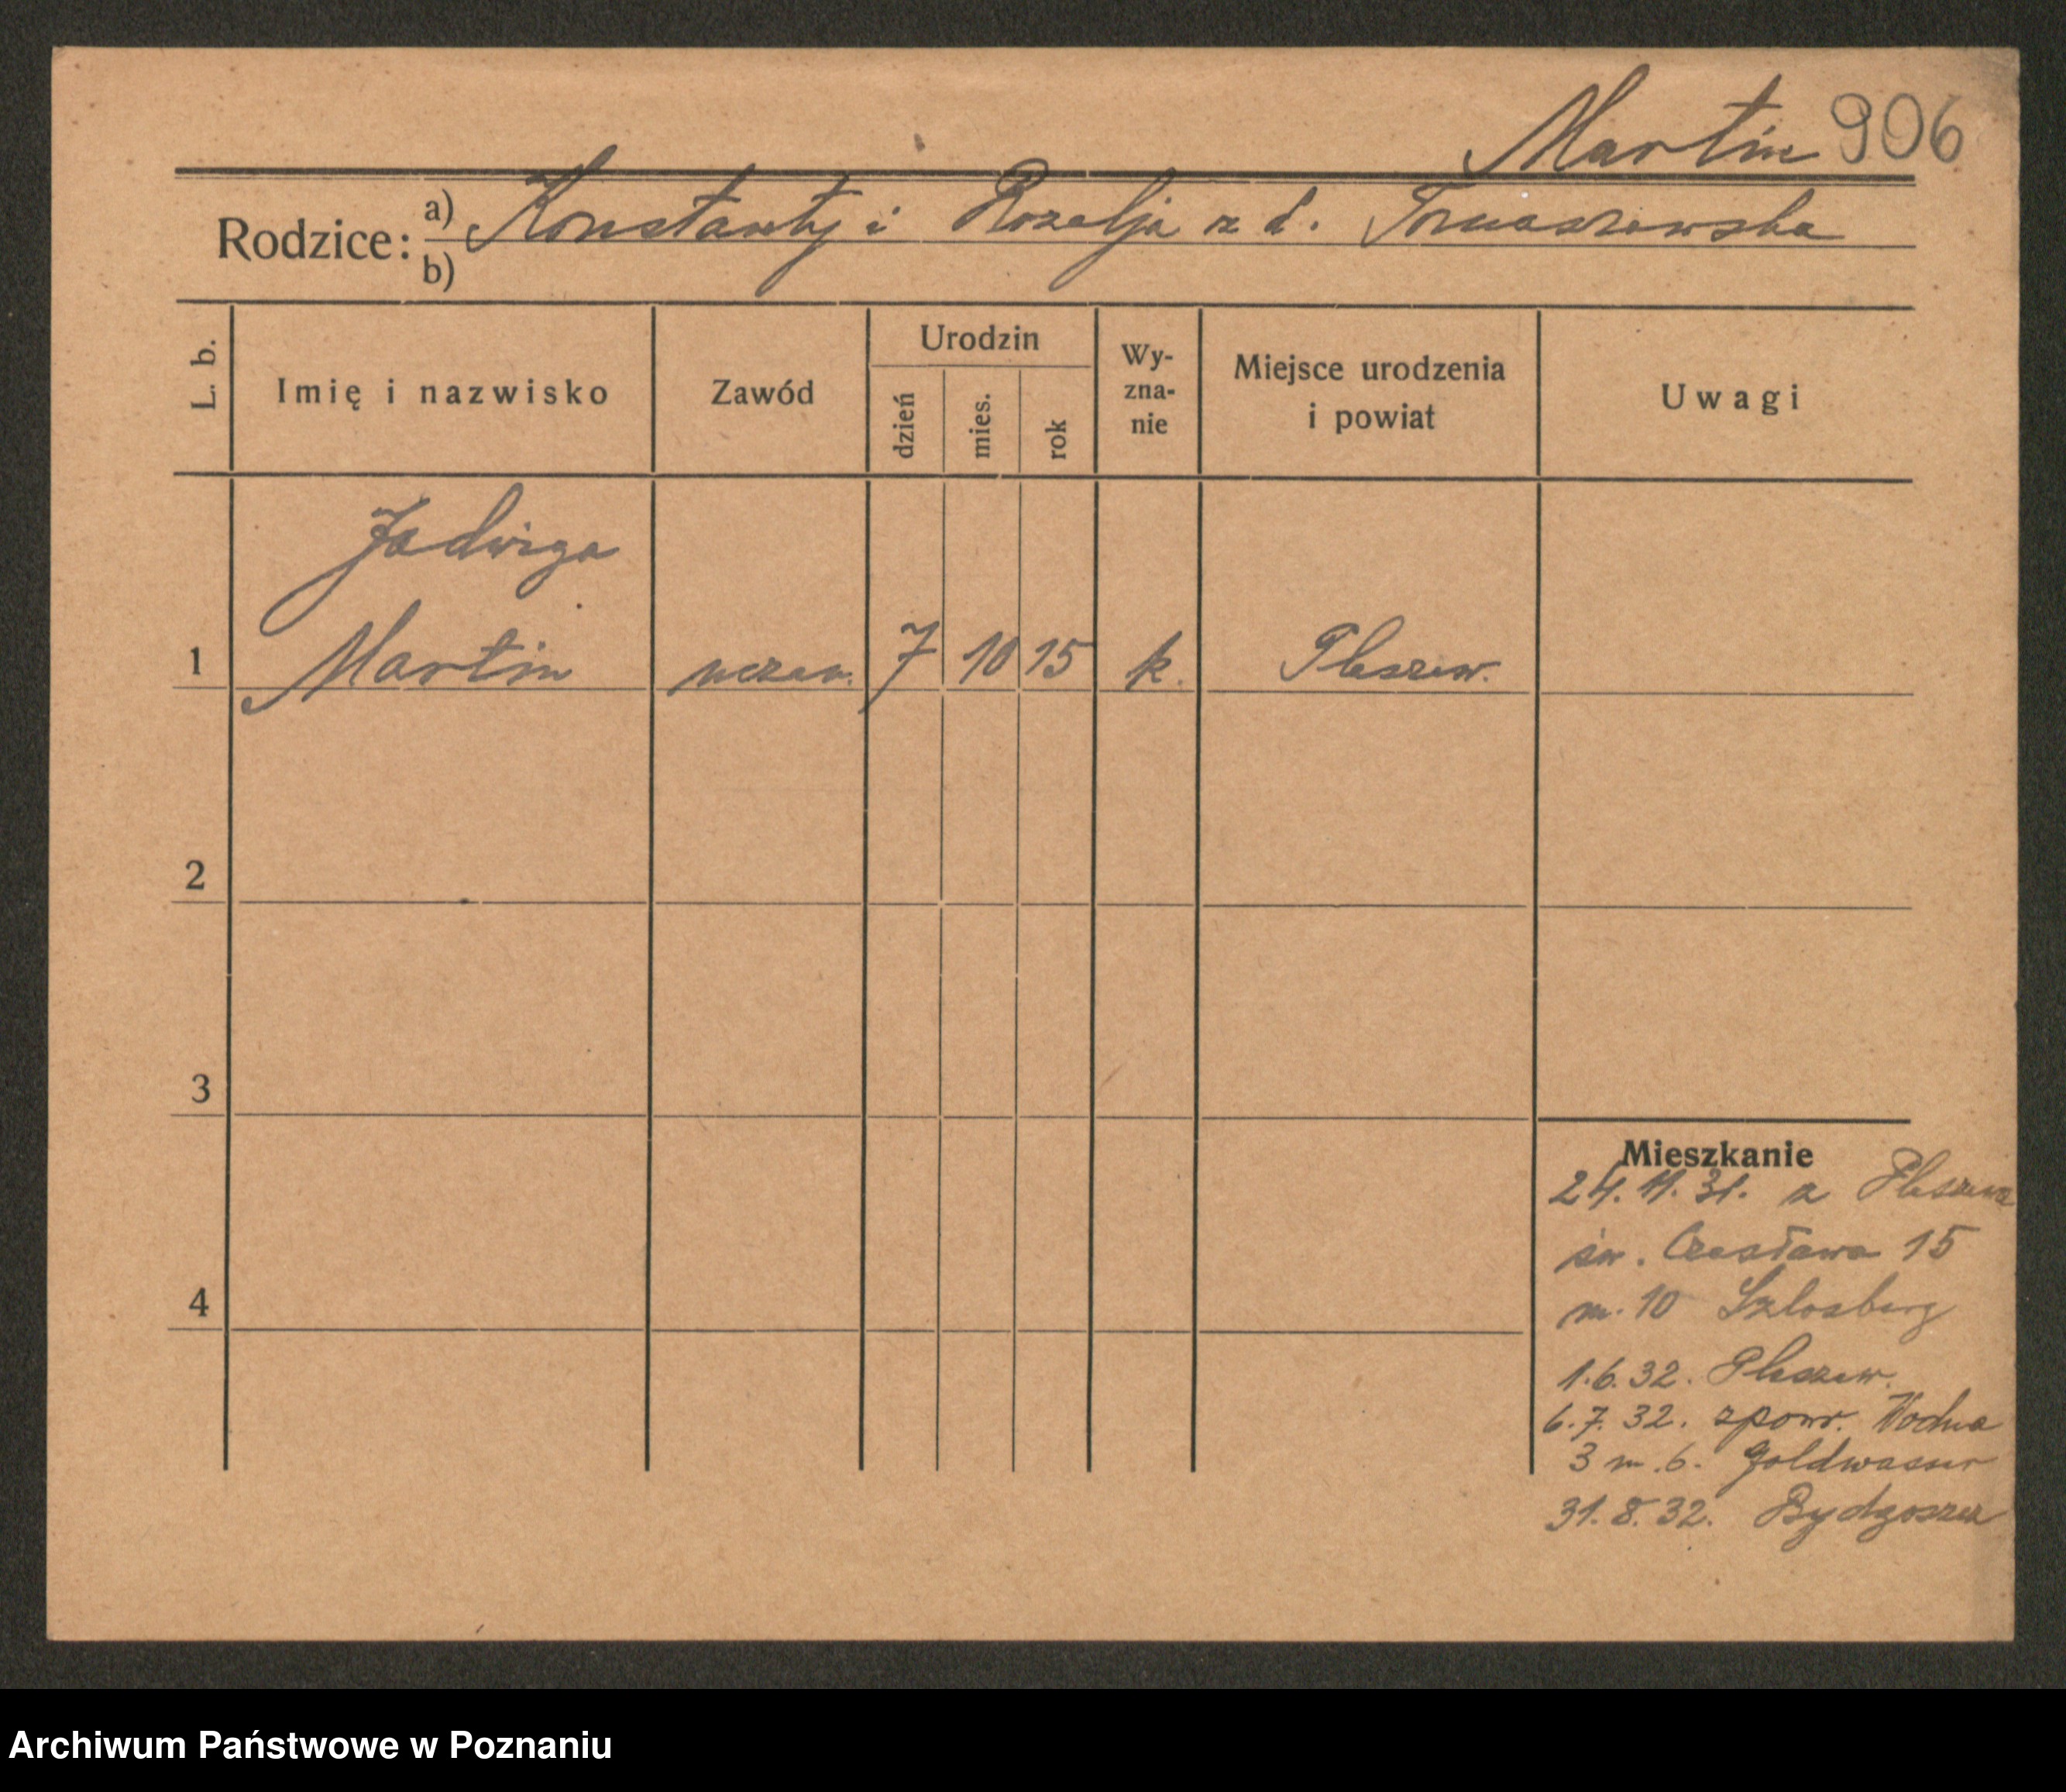 Martin 906
Rodzice: a) Konstanty i Rozalja z d. Tomaszewska
b)
L. b. Imię i nazwisko Zawód Urodzin dzień mies. rok Wy-zna-nie Miejsce urodzenia i powiat Uwagi
Jadwiga
1 Martin uczen. 7 10 15 k. Pleszew.
2
3
4
Mieszkanie
24. 11. 31. z Pleszewa
św. Czesława 15
m. 10 Szlosberg
1. 6. 32. Pleszew.
6. 7. 32. zpowr. Wodna
3 m. 6. Goldwasser
31. 8. 32. Bydgoszcz
Archiwum Państwowe w Poznaniu